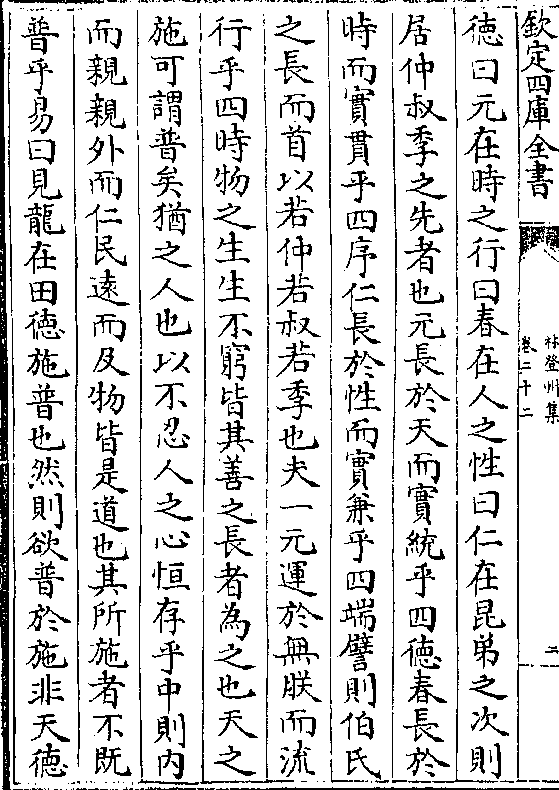 欽定四庫全書
林登州集
卷二十二
二
德曰元在時之行曰春在人之性曰仁在昆弟之次則
居仲叔季之先者也元長於天而實統乎四德春長於
時而實貫乎四序仁長於性而實兼乎四端譬則伯氏
之長而首以若仲若叔若季也夫一元運於無朕而流
行乎四時物之生生不窮皆其善之長者為之也天之
施可謂普矣猶之人也以不忍人之心恒存乎中則内
而親親外而仁民遠而及物皆是道也其所施者不既
普乎易曰見龍在田德施普也然則欲普於施非天德